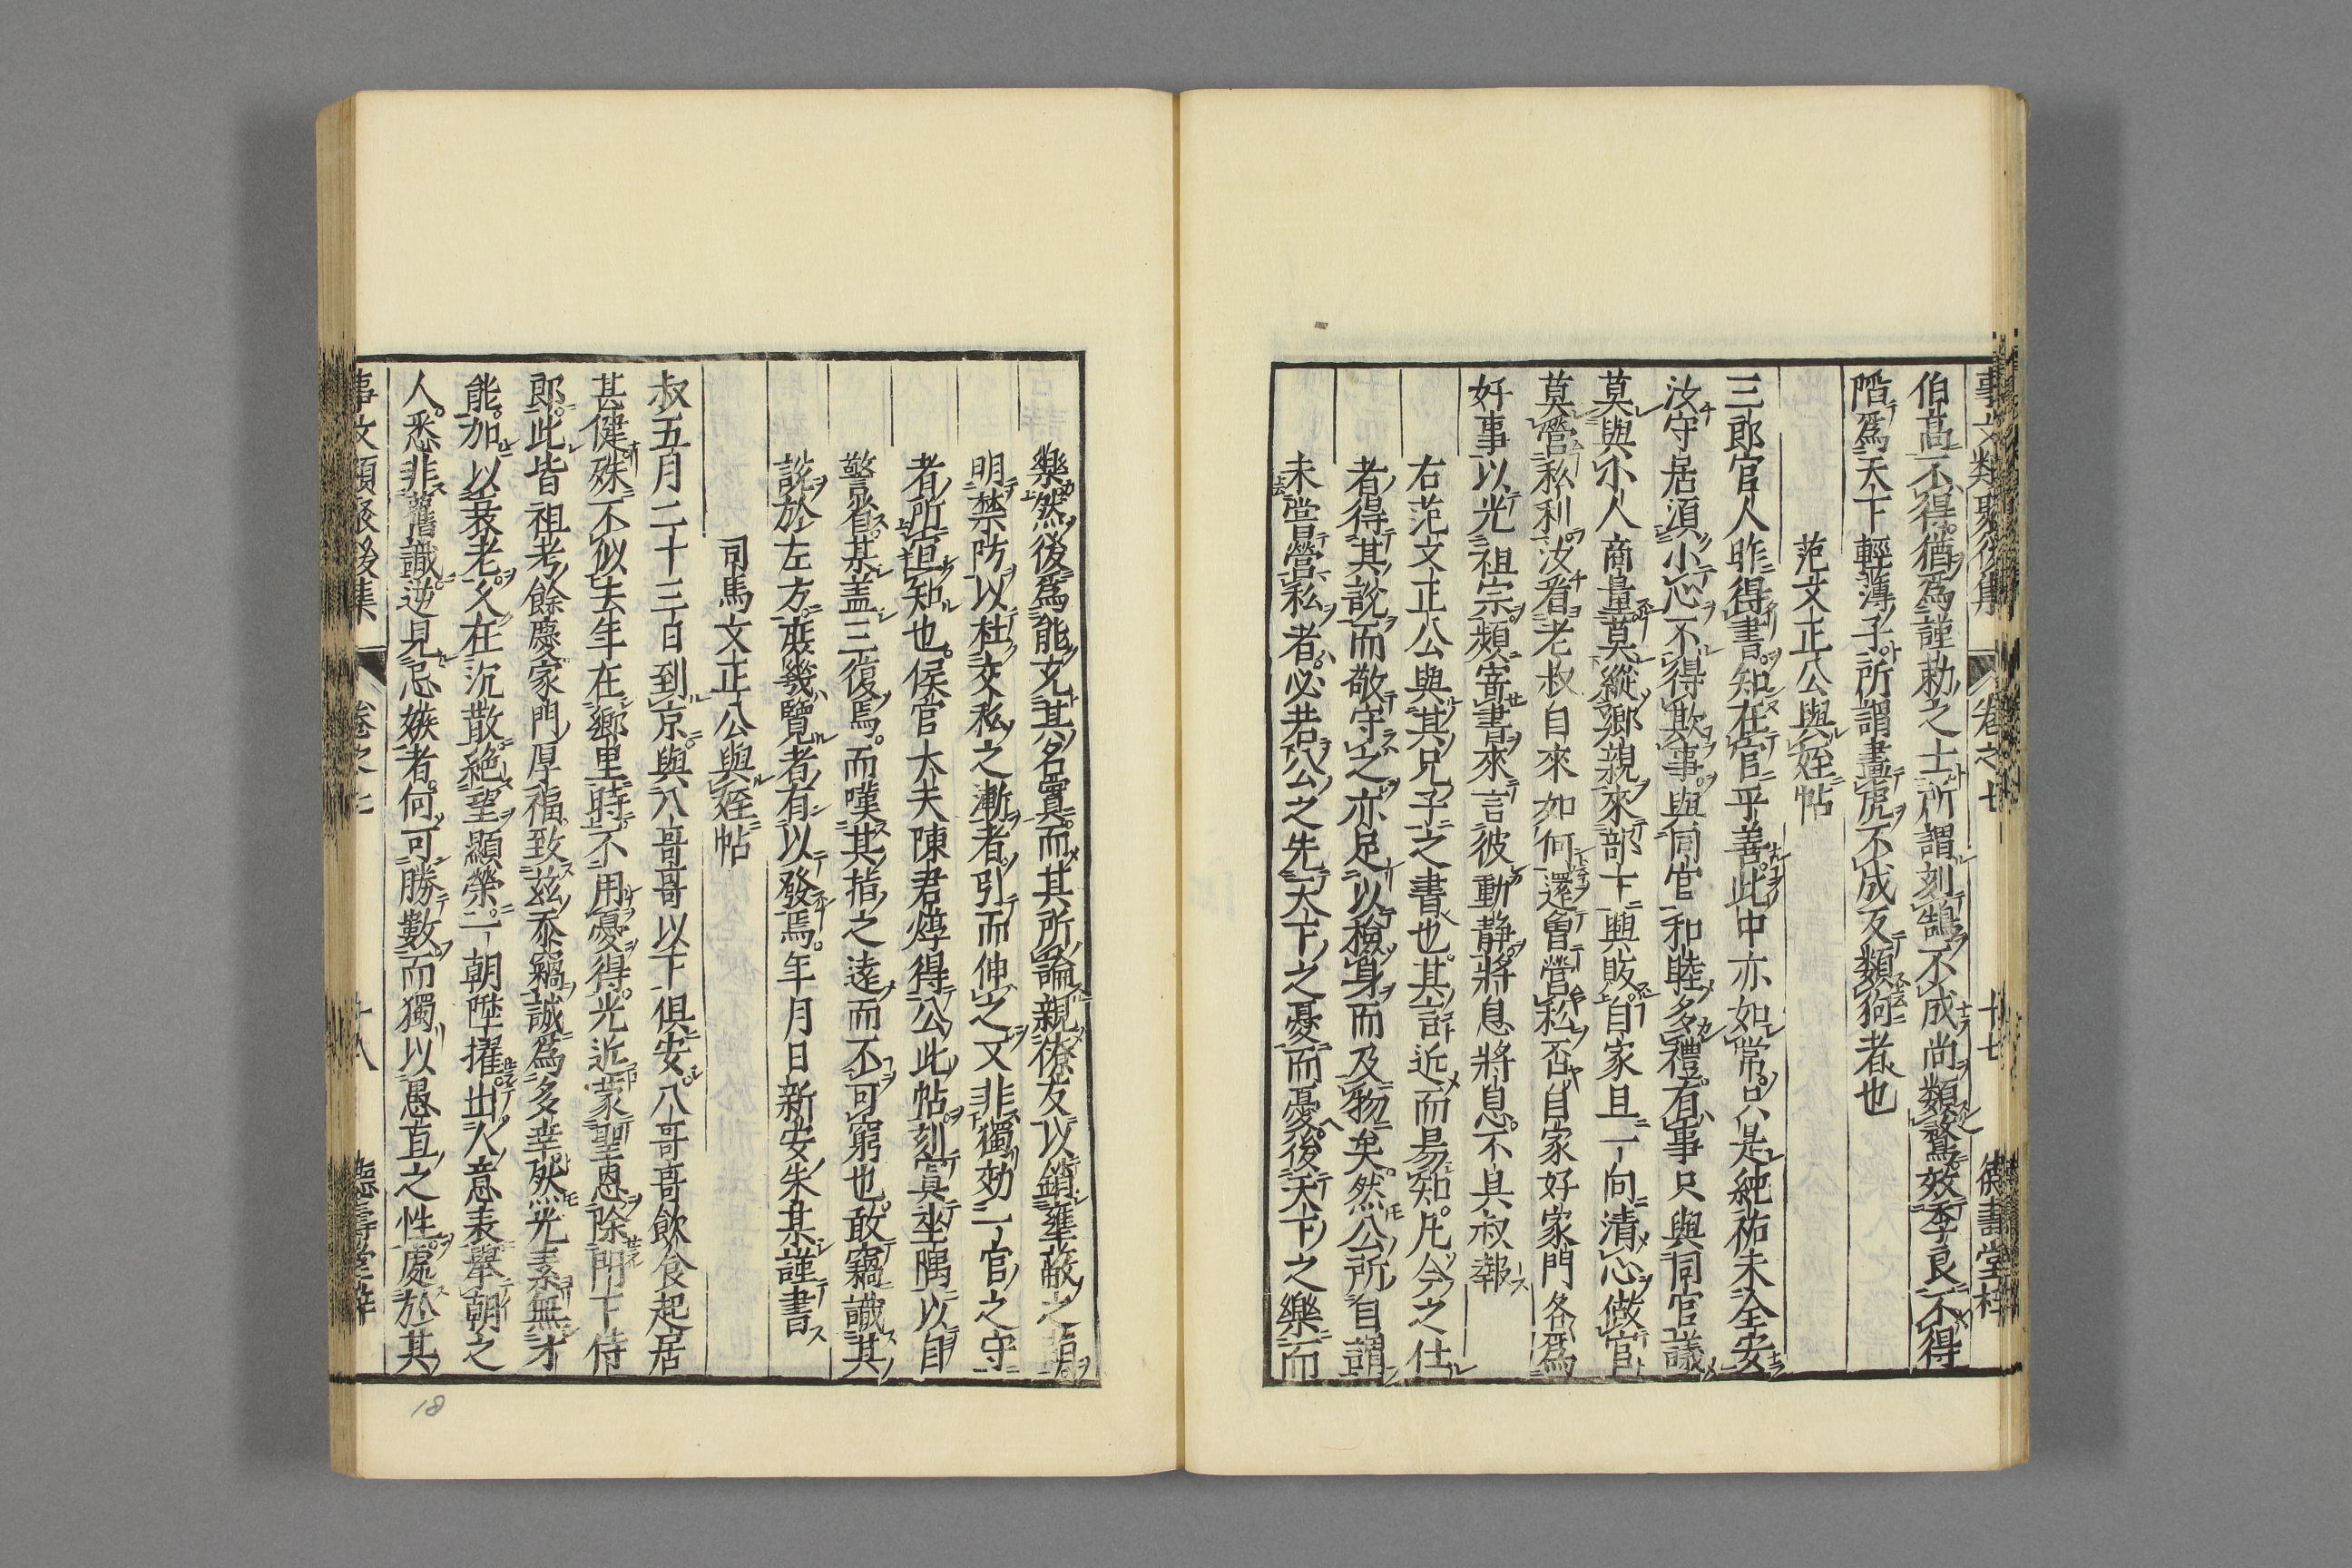 事文類聚後集 卷之七 十七 德壽堂梓
伯高不得猶爲謹勅之士所謂刻鵠不成尚類鶩效季良不得
陷爲天下輕薄子所謂畫虎不成反類狗者也
范文正公與姪帖
三郎官人昨得書知在官平善此中亦如常只是純祐未全安
汝守居須小心不得欺事與同官和睦多禮有事只與同官議
莫與小人商量莫縱鄉親來部下興販自家且一向清心做官
莫營私利汝看老叔自來如何還曾營私否自家好家門各爲
好事以光祖宗頻寄書來言彼動靜將息將息不具叔報
右范文正公與其兄子之書也其言近而易知凡今之仕
者得其說而敬守之亦足以檢身而及物矣然公所自謂
未嘗營私者必若公之先天下之憂而憂後天下之樂而
樂然後爲能充其名實而其所論親僚友以銷壅蔽之萌
明禁防以杜交私之漸者引而伸之又非獨効一官之守
者所宜知也侯官大夫陳君煒得公此帖刻寘坐隅以自
警省某盖三復焉而嘆其指之遠而不可窮也敢竊識其
說於左方庶幾覽者有以發焉年月日新安朱某謹書
司馬文正公與姪帖
叔五月二十三日到京與八哥哥以下俱安八哥哥飲食起居
甚健殊不似去年在鄉里時不用憂得光近蒙聖恩除門下侍
郎此皆祖考餘慶家門厚福致茲忝竊誠爲多幸然光素無才
能加以衰老久在沉散絶望顯榮一朝陞擢出人意表舉朝之
人悉非舊識逆見忌嫉者何可勝數而獨以愚直之性處於其
事文類聚後集 卷之七 十八 德壽堂梓
18